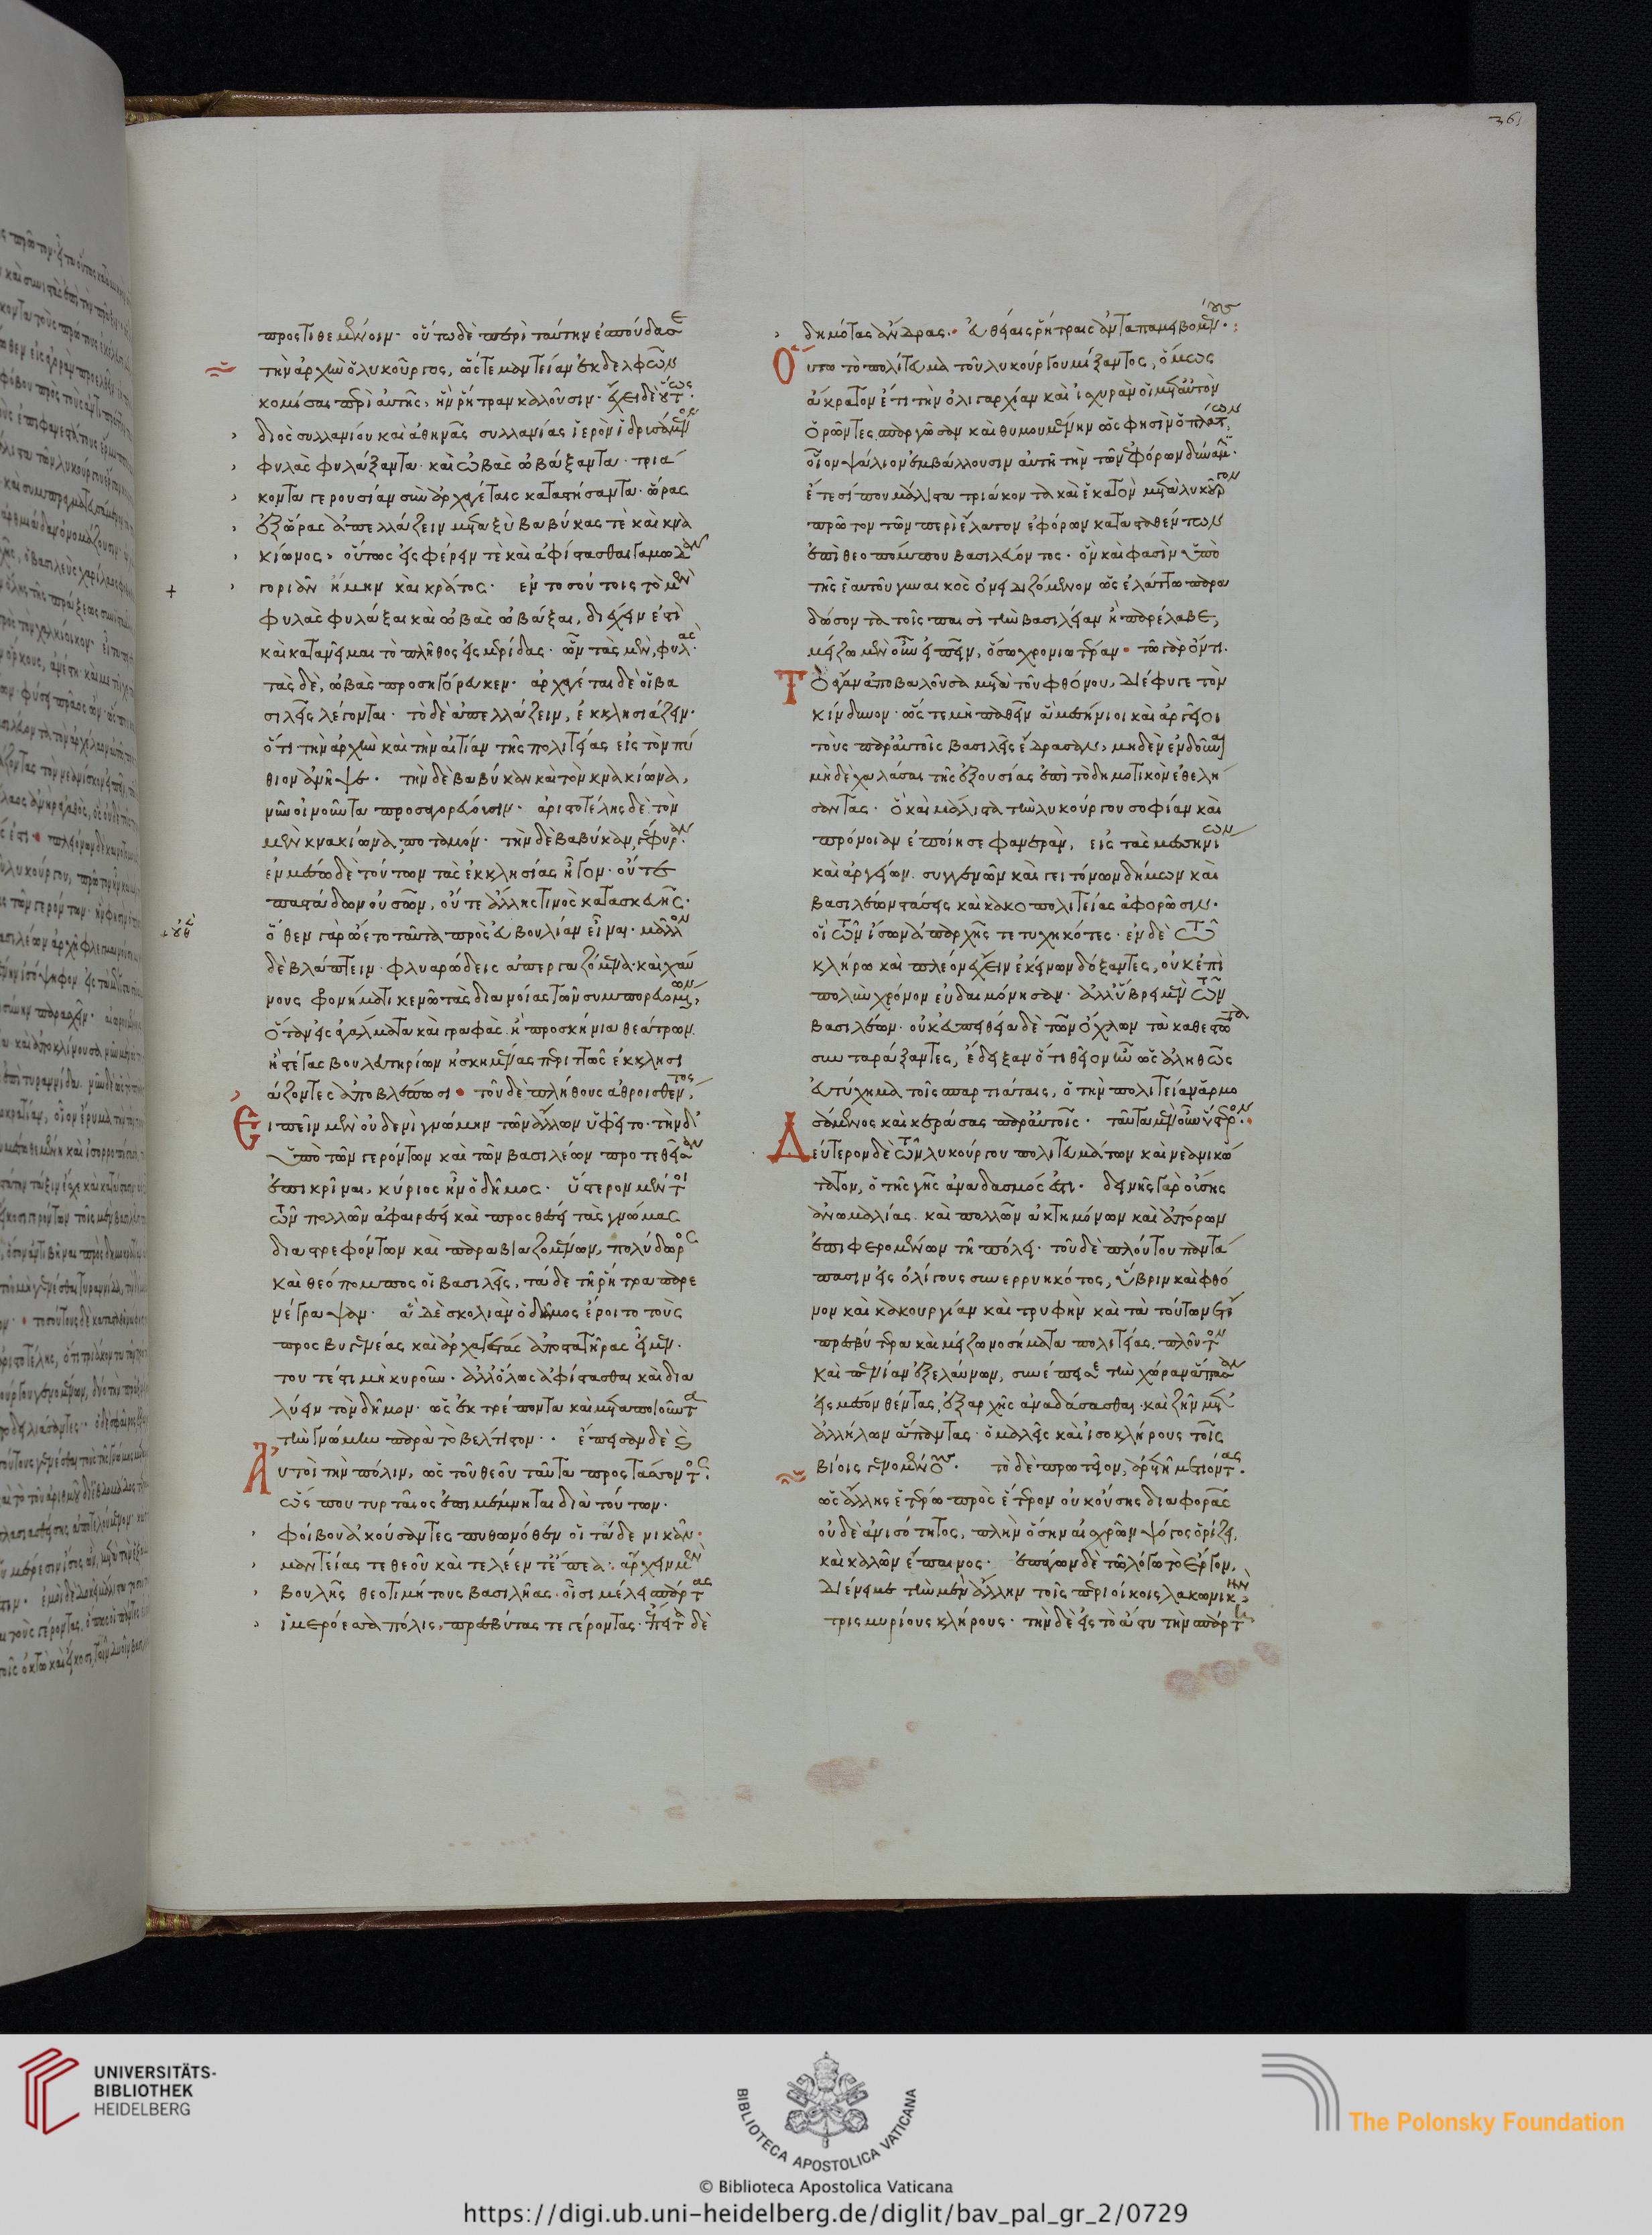 361
προστιθεμένοιν· οὕτω δὲ περὶ ταύτην ἐσπούδασε
τὴν ἀρχὴν ὁ λυκοῦργος, ὥστε μαντείαν ἐκ δελφῶν
κομίσαι περὶ αὐτῆς, ἣν ῥήτραν καλοῦσιν· ἔχει δὲ οὕτως·
διὸς συλλανίου καὶ ἀθηνᾶς συλλανίας ἱερὸν ἱδρυσάμενον
φυλὰς φυλάξαντα· καὶ ὠβὰς ὠβάξαντα· τριά
κοντα γερουσίαν σὺν ἀρχαγέταις καταστήσαντα· ὥρας
ἐξ ὥρας ἀπελλάζειν μεταξὺ βαβύκας τὲ καὶ κνα
κίωνος, οὕτως εἰσφέρειν τε καὶ ἀφίστασθαι
φυλὰς φυλάξαι καὶ ὠβὰς ὠβάξαι, διελεῖν ἐστὶ
καὶ κατανεῖμαι τὸ πλῆθος εἰς μερίδας· ὧν τὰς μὲν, φυλὰς·
τὰς δὲ, ὠβὰς προσηγόρευκεν· ἀρχαγέται δὲ οἱ βα
σιλεῖς λέγονται· τὸ δὲ ἀπελλάζειν, ἐκκλησιάζειν·
ὅτι τὴν ἀρχὴν καὶ τὴν αἰτίαν τῆς πολιτείας εἰς τὸν πύ
θιον ἀνῆψε· τὴν δὲ βαβύκαν καὶ τὸν κνακίωνα,
νῦν οἰνοῦντα προσαγορεύουσιν· ἀριστοτέλης δὲ τὸν
μὲν κνακίωνα, ποταμόν· τὴν δὲ βαβύκαν, γέφυραν·
ἐν μέσω δὲ τούτων τὰς ἐκκλησίας ἦγον· οὔτε
παστάδων οὐσῶν, οὔτε ἄλλης τινὸς κατασκευῆς·
ὅθεν γὰρ ὤετο ταῦτα πρὸς εὐβουλίαν εἶναι· μᾶλλον
δὲ βλάπτειν· φλυαρώδεις ἀπεργαζόμενα· καὶ χαύ
νους φρονήματι κενῶ τὰς διανοίας τῶν συμπορευομένων,
ὅταν εἰς ἀγάλματα καὶ γραφὰς ἢ προσκήνια θεάτρων
ἢ στέγας βουλευτηρίων ἠσκημένας περιττῶς ἐκκλησι
άζοντες ἀποβλέπωσι· τοῦ δὲ πλήθους ἀθροισθέντος,
εἰπεῖν μὲν οὐδενὶ γνώμην τῶν ἄλλων ὑφεῖτο· τὴν δ'
ὑπὸ τῶν γερόντων καὶ τῶν βασιλέων προτεθεῖσαν
ἐπικρῖναι, κύριος ἦν ὁ δῆμος· ὕστερον μέντοι
τῶν πολλῶν ἀφαιρέσει καὶ προσθέσει τὰς γνώμας
διαστρεφόντων καὶ παραβιαζομένων, πολύδωρος
καὶ θεόπομπος οἱ βασιλεῖς, τάδε τῇ ῥήτρα παρε
νέγραψαν· αἰ δὲ σκολιὰν ὁ δῆμος ἕροιτο τοὺς
πρεσβυγενέας καὶ ἀρχαγέτας ἀποστατῆρας εἶμεν·
τουτέστι μὴ κυροῦν· ἀλλ' ὅλως ἀφίστασθαι καὶ δια
λύειν τὸν δῆμον· ὡς ἐκτρέποντα καὶ μεταποιοῦντα
τὴν γνώμην παρὰ τὸ βέλτιστον· ἔπεισαν δὲ καὶ
αὐτοὶ τὴν πόλιν, ὡς τοῦ θεοῦ ταῦτα προστάσσοντος·
ὥς που τυρταῖος ἐπιμέμνηται διὰ τούτων·
φοίβου ἀκούσαντες πυθωνόθεν οἱ τάδε νικᾶν·
μαντείας τε θεοῦ καὶ τελέεντ' ἔπεα· ἄρχειν μὲν
βουλῆς θεοτιμήτους βασιλῆας· οἷσι μέλει σπάρτας
ἱμερόεσσα πόλις, πρεσβύτας τε γέροντας· ἔπειτα δὲ
δημότας ἄνδρας· εὐθείαις ῥήτραις ἀνταπαμειβομένους·
οὕτω τὸ πολίτευμα τοῦ λυκούργου μίξαντος, ὅμως
ἄκρατον ἔτι τὴν ὀλιγαρχίαν καὶ ἰσχυρὰν οἱ μετ' αὐτὸν
ὁρῶντες σπαργῶσαν καὶ θυμουμένην ὥς φησιν ὁ πλάτων,
οἷον ψάλιον ἐμβάλλουσιν αὐτῇ τὴν τῶν ἐφόρων δύναμιν·
ἔτεσί που μάλιστα τριάκοντα καὶ ἑκατὸν μετὰ λυκοῦργον
πρῶτον τῶν περὶ ἔλατον ἐφόρων κατασταθέντων
ἐπὶ θεοπόμπου βασιλεύοντος· ὃν καὶ φασὶν ὑπὸ
τῆς ἑαυτοῦ γυναικὸς ὀνειδιζόμενον ὡς ἐλάττω παρα
δώσοντα τοῖς παισὶ τὴν βασιλείαν ἢ παρέλαβε,
μείζω μὲν οὖν εἰπεῖν, ὅσω χρονιωτέραν· τῶ γὰρ ὄντι
τὸ ἄγαν ἀποβαλοῦσα μετὰ τοῦ φθόνου, διέφυγε τὸν
κίνδυνον· ὥστε μὴ παθεῖν ἃ μεσσήνιοι καὶ ἀργεῖοι
τοὺς παρ' αὐτοῖς βασιλεῖς ἔδρασαν, μηδὲν ἐνδοῦναι
μηδὲ χαλάσαι τῆς ἐξουσίας ἐπὶ τὸ δημοτικὸν ἐθελή
σαντας· ὃ καὶ μάλιστα τὴν λυκούργου σοφίαν καὶ
πρόνοιαν ἐποίησε φανερὰν, εἰς τὰς μεσσηνίων
καὶ ἀργείων συγγενῶν καὶ γειτόνων δήμων καὶ
βασιλέων στάσεις καὶ κακοπολιτείας ἀφορῶσιν·
οἳ τῶν ἴσων ἀπαρχῆς τετυχηκότες· ἐν δὲ τῶ
κλήρω καὶ πλέον ἔχειν ἐκείνων δόξαντες, οὐκ ἐπὶ
πολὺν χρόνον εὐδαιμόνησαν· ἀλλ' ὕβρει μὲν τῶν
βασιλέων· οὐκ εὐπειθεία δὲ τῶν ὄχλων τὰ καθεστῶτα
συνταράξαντες, ἔδειξαν ὅτι θεῖον ἦν ὡς ἀληθῶς
εὐτύχημα τοῖς σπαρτιάταις, ὁ τὴν πολιτείαν ἁρμο
σάμενος καὶ κεράσας παρ' αὐτοῖς· ταῦτα μὲν οὖν ὕστερον·
δεύτερον δὲ τῶν λυκούργου πολιτευμάτων καὶ νεανικώ
τατον, ὁ τῆς γῆς ἀναδασμός ἐστι· δεινῆς γὰρ οὔσης
ἀνωμαλίας καὶ πολλῶν ἀκτημόνων καὶ ἀπόρων
ἐπιφερομένων τῇ πόλει· τοῦ δὲ πλούτου παντά
πασιν εἰς ὀλίγους συνερρυηκότος, ὕβριν καὶ φθό
νον καὶ κακουργίαν καὶ τρυφὴν καὶ τὰ τούτων ἔτι
πρεσβύτερα καὶ μείζω νοσήματα πολιτείας πλοῦτον
καὶ πενίαν ἐξελαύνων, συνέπεισε τὴν χώραν ἅπασαν
εἰς μέσον θέντας, ἐξαρχῆς ἀναδάσασθαι· καὶ ζῆν μετ'
ἀλλήλων ἅπαντας ὁμαλεῖς καὶ ἰσοκλήρους τοῖς
βίοις γενομένους· τὸ δὲ πρωτεῖον, ἀρετῇ μετιόντας·
ὡς ἄλλης ἑτέρω πρὸς ἕτερον οὐκ οὔσης διαφορᾶς
οὐδὲ ἀνισότητος, πλὴν ὅσην αἰσχρῶν ψόγος ὁρίζει
καὶ καλῶν ἔπαινος· ἐπάγων δὲ τῶ λόγω τὸ ἔργον,
διένειμε τὴν μὲν ἄλλην τοῖς περιοίκοις λακωνικὴν
τρισμυρίους κλήρους· τὴν δὲ εἰς τὸ ἄστυ τὴν σπάρτην
UNIVERSITÄTS-
BIBLIOTHEK
HEIDELBERG
BIBLIOTECA APOSTOLICA VATICANA
The Polonsky Foundation
© Biblioteca Apostolica Vaticana
https://digi.ub.uni-heidelberg.de/diglit/bav_pal_gr_2/0729